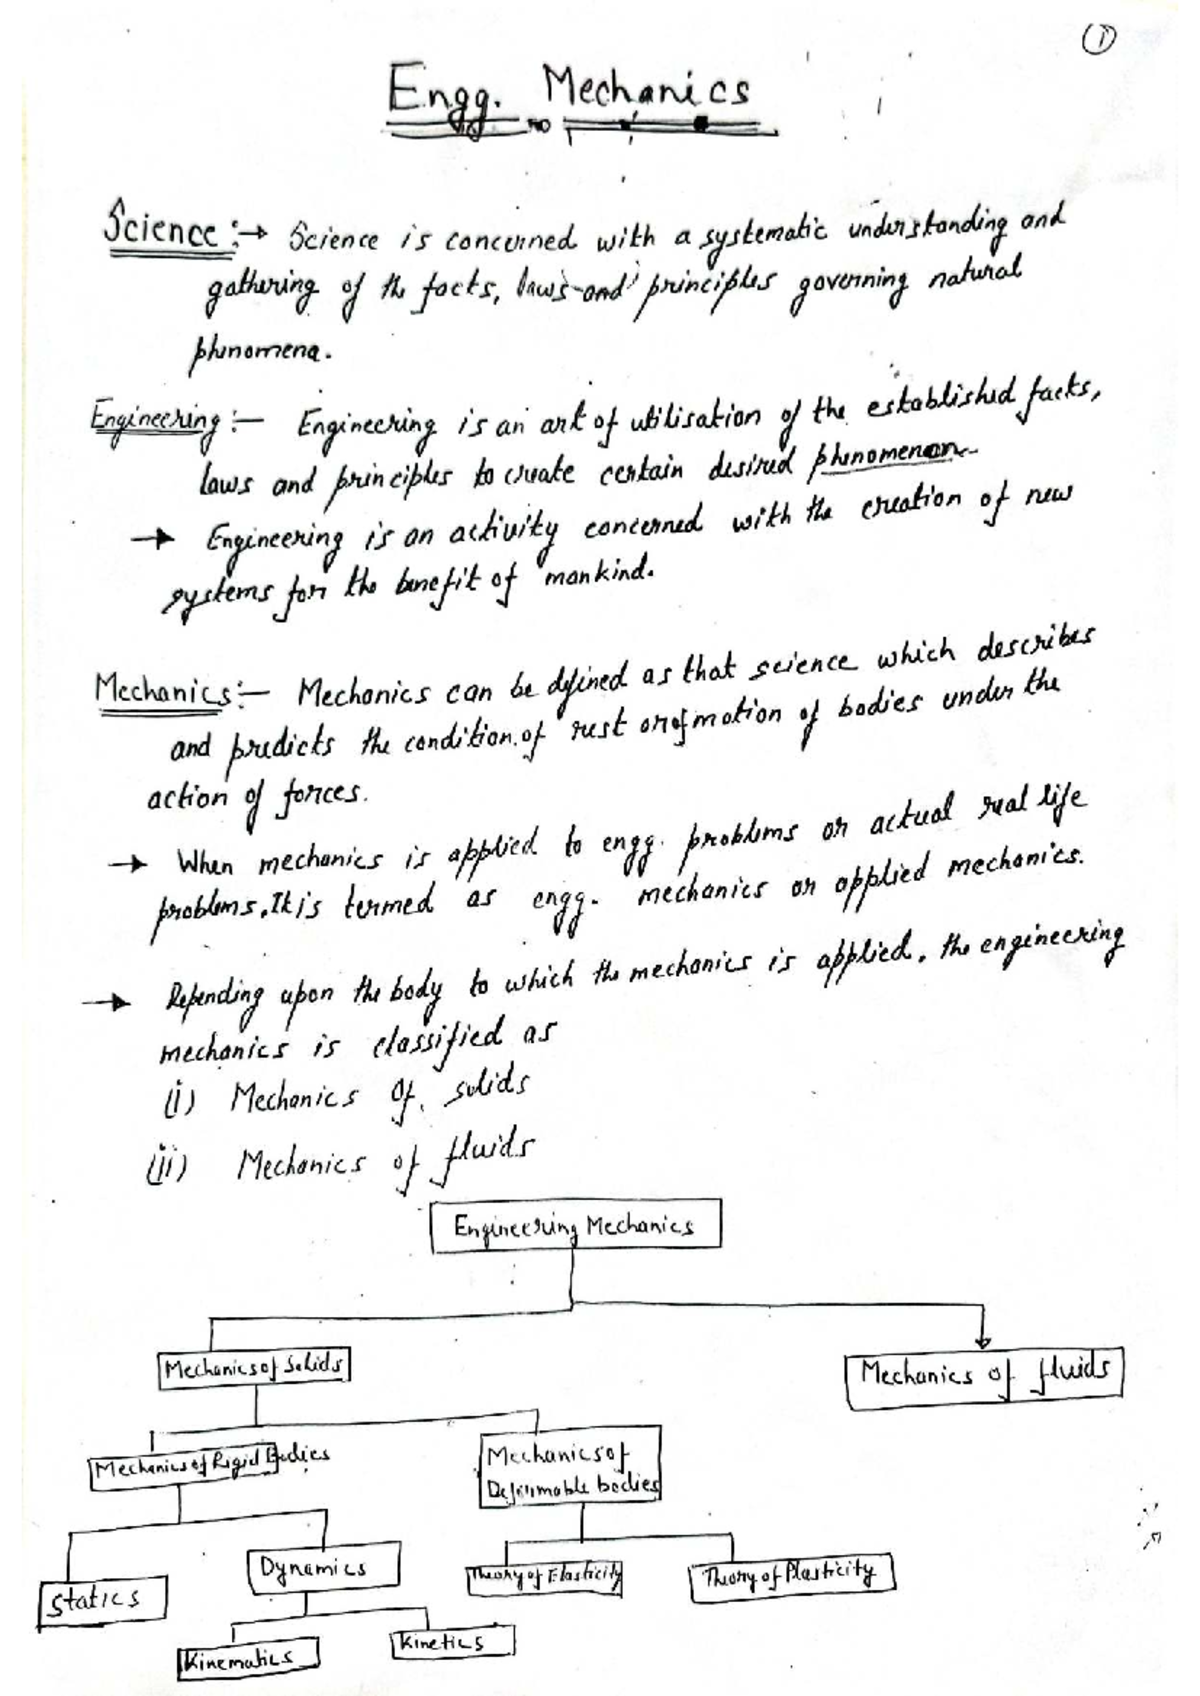 1
Engg. Mechanics
Science :→ Science is concerned with a systematic understanding and
gathering of the facts, laws and principles governing natural
phenomena.
Engineering :— Engineering is an art of utilisation of the established facts,
laws and principles to create certain desired phenomenon.
→ Engineering is an activity concerned with the creation of new
systems for the benefit of mankind.
Mechanics :— Mechanics can be defined as that science which describes
and predicts the condition of rest or of motion of bodies under the
action of forces.
→ When mechanics is applied to engg. problems or actual real life
problems, It is termed as engg. mechanics or applied mechanics.
→ Depending upon the body to which the mechanics is applied, the engineering
mechanics is classified as
(i) Mechanics of solids
(ii) Mechanics of fluids
Engineering Mechanics
Mechanics of Solids
Mechanics of fluids
Mechanics of Rigid Bodies
Mechanics of
Deformable bodies
Statics
Dynamics
Theory of Elasticity
Theory of Plasticity
Kinematics
Kinetics